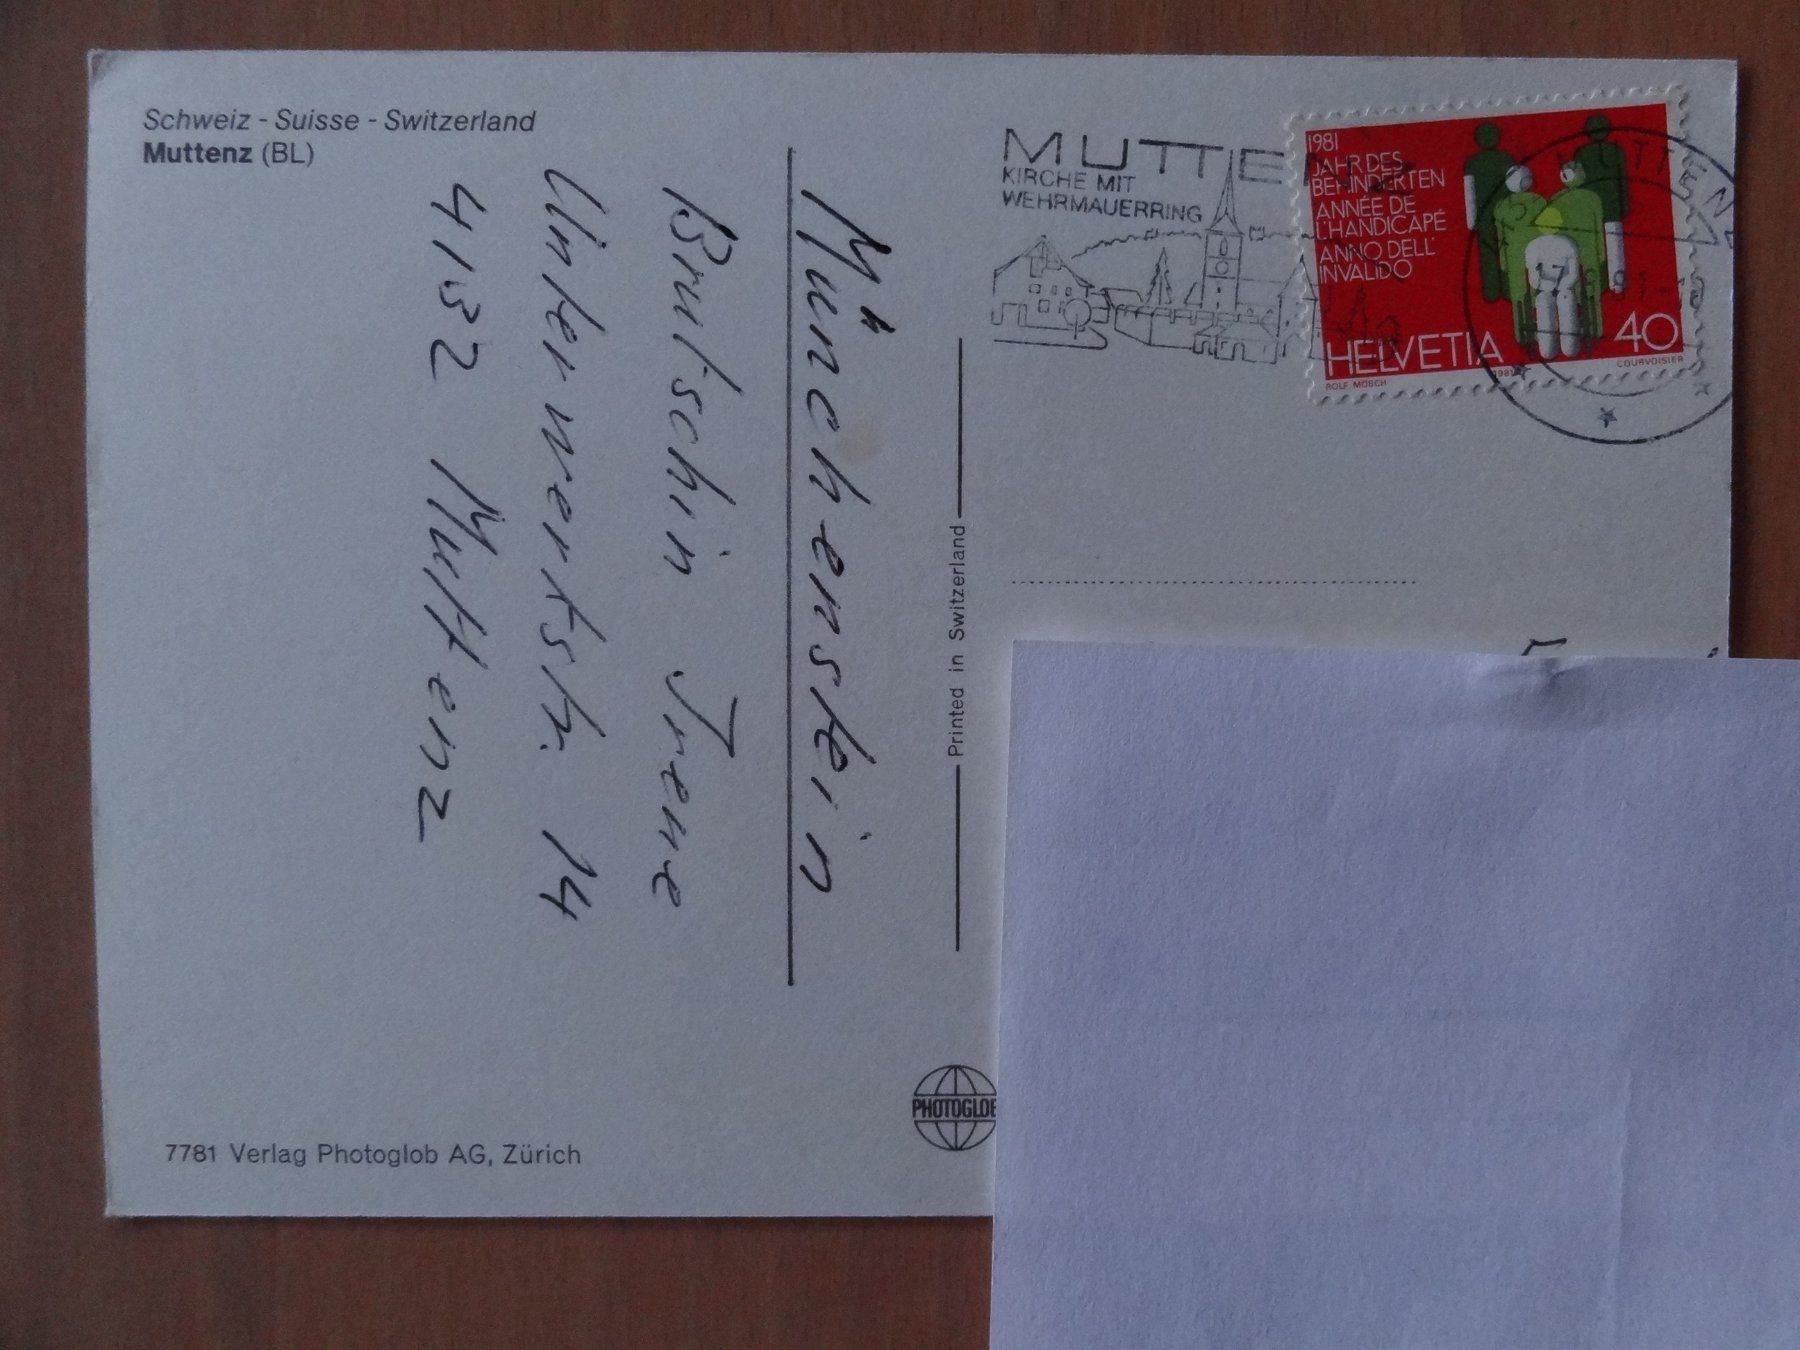 Schweiz - Suisse - Switzerland
Muttenz (BL)
Münchenstein
Brutschin Irene
Unterwartsch. 14
4132 Muttenz
Printed in Switzerland
PHOTOGLOB
7781 Verlag Photoglob AG, Zürich
MUTTENZ
KIRCHE MIT
WEHRMAUERRING
1981
JAHR DES
BEHINDERTEN
ANNÉE DE
L'HANDICAPÉ
ANNO DELL'
INVALIDO
HELVETIA
40
ROLF MÖSCH
1981
COURVOISIER
MUTTENZ